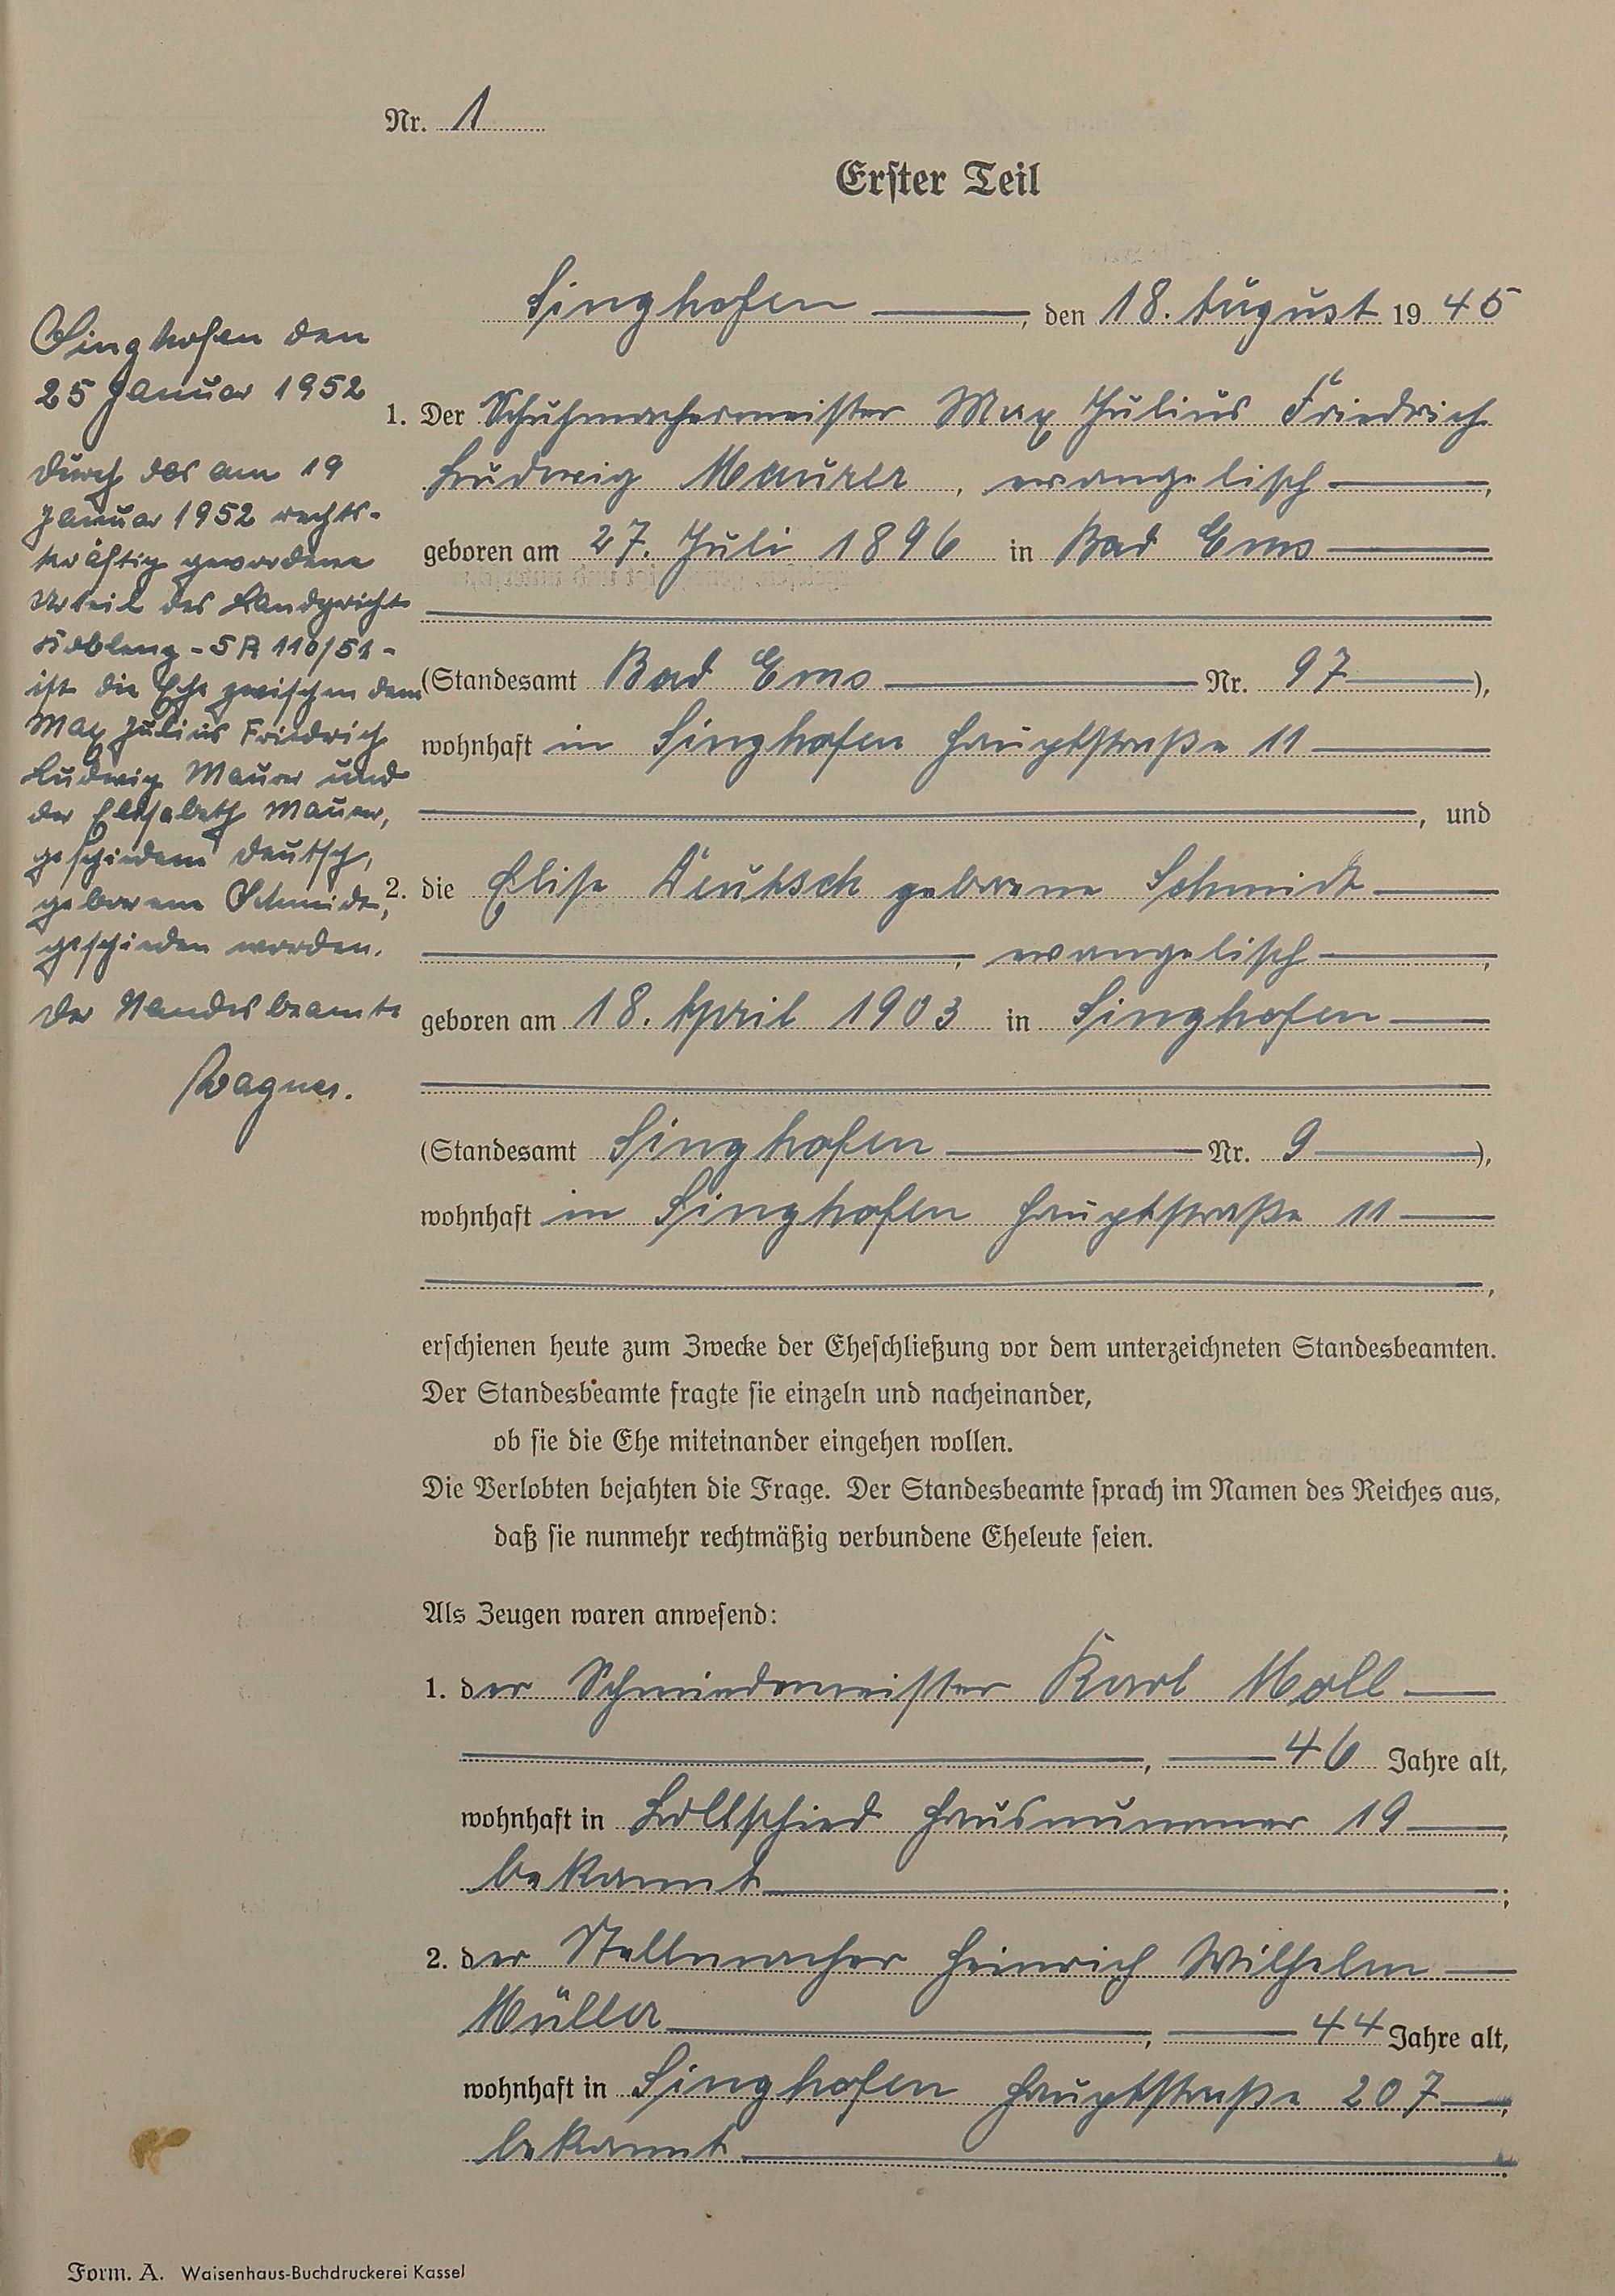 Nr. 1
Erster Teil
Singhofen, den 18. August 1945
1. Der Schuhmachermeister Max Julius Friedrich
Ludwig Maurer, evangelisch,
geboren am 27. Juli 1896 in Bad Ems
(Standesamt Bad Ems Nr. 97),
wohnhaft in Singhofen Hauptstraße 11
, und
2. die Elise Deutsch geborene Schmidt
, evangelisch,
geboren am 18. April 1903 in Singhofen
(Standesamt Singhofen Nr. 9),
wohnhaft in Singhofen Hauptstraße 11
,
erschienen heute zum Zwecke der Eheschließung vor dem unterzeichneten Standesbeamten.
Der Standesbeamte fragte sie einzeln und nacheinander,
ob sie die Ehe miteinander eingehen wollen.
Die Verlobten bejahten die Frage. Der Standesbeamte sprach im Namen des Reiches aus,
daß sie nunmehr rechtmäßig verbundene Eheleute seien.
Als Zeugen waren anwesend:
1. der Schmiedemeister Karl Moll
, 46 Jahre alt,
wohnhaft in Lollschied Hausnummer 19,
bekannt;
2. der Stellmacher Heinrich Wilhelm
Müller, 44 Jahre alt,
wohnhaft in Singhofen Hauptstraße 207,
bekannt.
Singhofen den
25 Januar 1952
Durch das am 19
Januar 1952 rechts-
kräftig gewordene
Urteil des Landgerichts
Koblenz - 5 R 110/51 -
ist die Ehe zwischen dem
Max Julius Friedrich
Ludwig Maurer und
der Elisabeth Maurer,
geschiedene Deutsch,
geborene Schmidt,
geschieden worden.
Der Standesbeamte
Wagner.
Form. A. Waisenhaus-Buchdruckerei Kassel